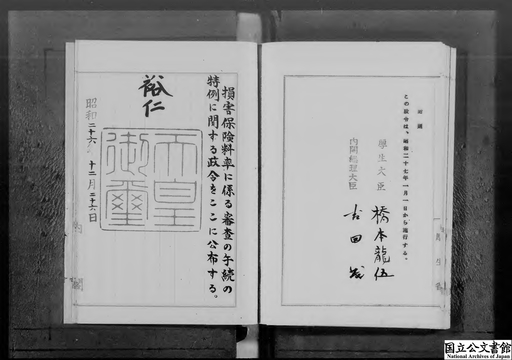 附則
この政令は、昭和二十七年一月一日から施行する。
厚生大臣 橋本龍伍
内閣総理大臣 吉田茂
損害保険料率に係る審査の手続の
特例に関する政令をここに公布する。
裕仁
天皇御璽
昭和二十六年十二月二十六日
内閣
国立公文書館
National Archives of Japan